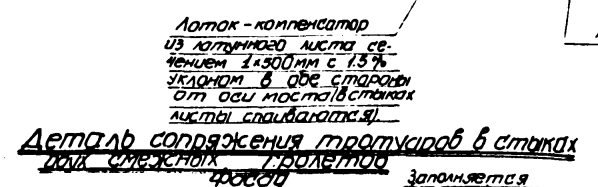 Лоток - компенсатор
из латунного листа се-
чением 1х500мм с 1.5%
уклоном в обе стороны
от оси моста (в стыках
листы спаиваются)
Деталь сопряжения тротуаров в стыках
двух смежных пролетов
Фасад
Заполняется